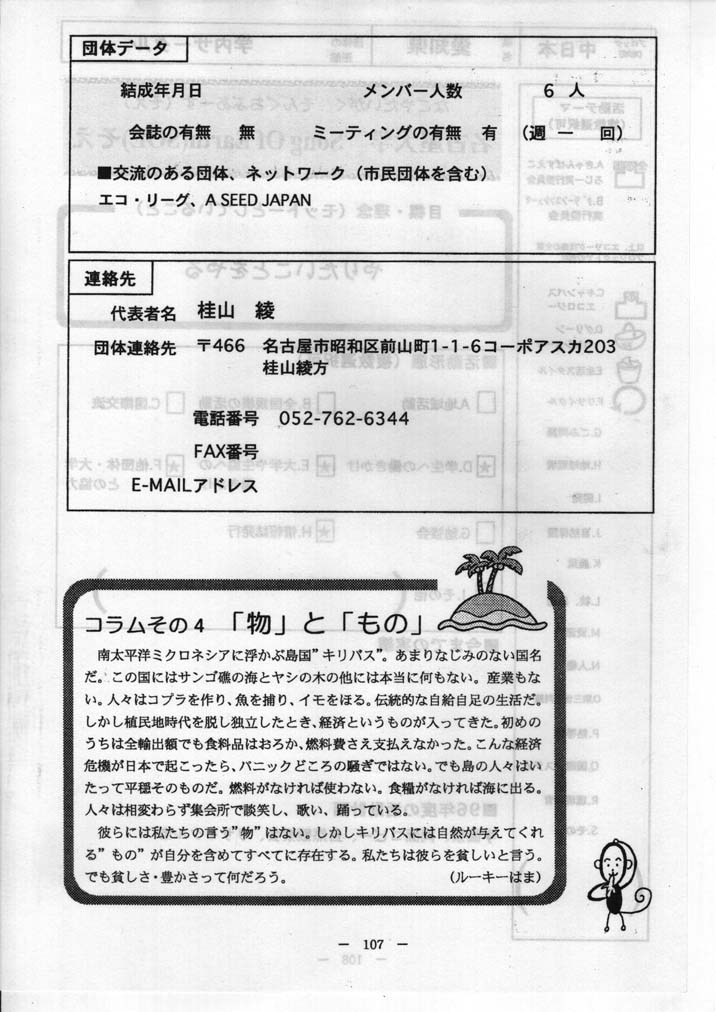 団体データ
結成年月日 メンバー人数 6 人
会誌の有無 無 ミーティングの有無 有 (週 一 回)
■交流のある団体、ネットワーク(市民団体を含む)
エコ・リーグ、A SEED JAPAN
連絡先
代表者名 桂山 綾
団体連絡先 〒466 名古屋市昭和区前山町1-1-6コーポアスカ203
桂山綾方
電話番号 052-762-6344
FAX番号
E-MAILアドレス
コラムその4 「物」と「もの」
南太平洋ミクロネシアに浮かぶ島国”キリバス”。あまりなじみのない国名
だ。この国にはサンゴ礁の海とヤシの木の他には本当に何もない。産業もな
い。人々はコプラを作り、魚を捕り、イモをほる。伝統的な自給自足の生活だ。
しかし植民地時代を脱し独立したとき、経済というものが入ってきた。初めの
うちは全輸出額でも食料品はおろか、燃料費さえ支払えなかった。こんな経済
危機が日本で起こったら、パニックどころの騒ぎではない。でも島の人々はい
たって平穏そのものだ。燃料がなければ使わない。食糧がなければ海に出る。
人々は相変わらず集会所で談笑し、歌い、踊っている。
彼らには私たちの言う”物”はない。しかしキリバスには自然が与えてくれ
る”もの”が自分を含めてすべてに存在する。私たちは彼らを貧しいと言う。
でも貧しさ・豊かさって何だろう。 (ルーキーはま)
― 107 ―